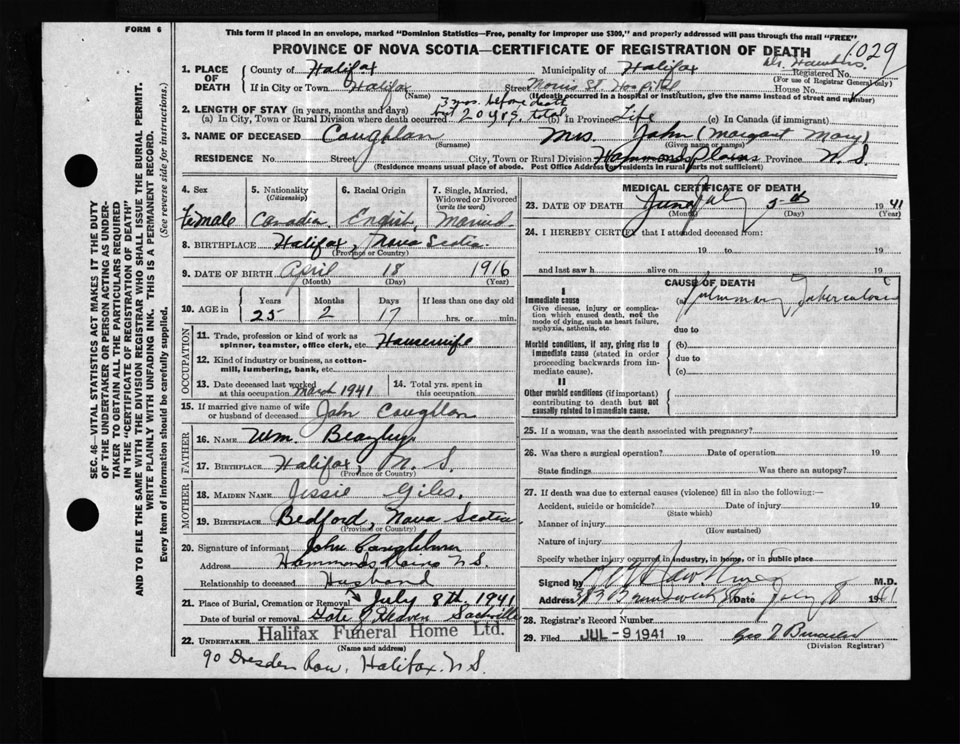 FORM 6
This form if placed in an envelope, marked "Dominion Statistics—Free, penalty for improper use $300," and properly addressed will pass through the mail "FREE"
PROVINCE OF NOVA SCOTIA—CERTIFICATE OF REGISTRATION OF DEATH
1029
1. PLACE OF DEATH
County of Halifax Municipality of Halifax Registered No.
(For use of Registrar General only)
If in City or Town Halifax Street Morris St. Hospital House No.
(Name) (If death occurred in a hospital or institution, give the name instead of street and number)
2. LENGTH OF STAY (in years, months and days) 3 mos. before death
(a) In City, Town or Rural Division where death occurred but 20 yrs. total (b) in Province Life (c) in Canada (if immigrant)
3. NAME OF DECEASED Coughlan Mrs. John (Margaret Mary)
(Surname) (Given name or names)
RESIDENCE No. Street City, Town or Rural Division Hammonds Plains Province N.S.
(Residence means usual place of abode. Post Office Address for residents in rural parts not sufficient)
SEC. 46—VITAL STATISTICS ACT MAKES IT THE DUTY
OF THE UNDERTAKER OR PERSON ACTING AS UNDER-
TAKER TO OBTAIN ALL THE PARTICULARS REQUIRED
IN THE "CERTIFICATE OF REGISTRATION OF DEATH"
AND TO FILE THE SAME WITH THE DIVISION REGISTRAR WHO SHALL ISSUE THE BURIAL PERMIT.
WRITE PLAINLY WITH UNFADING INK. THIS IS A PERMANENT RECORD.
Every item of information should be carefully supplied. (See reverse side for instructions.)
4. Sex 5. Nationality (Citizenship) 6. Racial Origin 7. Single, Married, Widowed or Divorced (write the word)
Female Canadian English Married
8. BIRTHPLACE Halifax, Nova Scotia
(Province or Country)
9. DATE OF BIRTH April 18 1916
(Month) (Day) (Year)
10. AGE in Years Months Days If less than one day old
25 2 17 hrs. or min.
OCCUPATION
11. Trade, profession or kind of work as spinner, teamster, office clerk, etc. Housewife
12. Kind of industry or business, as cotton-mill, lumbering, bank, etc.
13. Date deceased last worked at this occupation March 1941 14. Total yrs. spent in this occupation
15. If married give name of wife or husband of deceased John Coughlan
FATHER
16. NAME Wm. Beazley
17. BIRTHPLACE Halifax, N.S.
(Province or Country)
MOTHER
18. MAIDEN NAME Jessie Giles.
19. BIRTHPLACE Bedford, Nova Scotia
(Province or Country)
20. Signature of informant John Coughlan
Address Hammonds Plains N.S.
Relationship to deceased Husband
21. Place of Burial, Cremation or Removal July 8th, 1941
Date of burial or removal Gate of Heaven Sackville
22. UNDERTAKER Halifax Funeral Home Ltd.
(Name and address)
90 Dresden Row, Halifax. N.S.
MEDICAL CERTIFICATE OF DEATH
23. DATE OF DEATH June July 5th 1941
(Month) (Day) (Year)
24. I HEREBY CERTIFY that I attended deceased from:
19 to 19
and last saw h alive on 19
CAUSE OF DEATH
I
Immediate cause (a) Pulmonary Tuberculosis
Give disease, injury or complication which caused death, not the mode of dying, such as heart failure, asphyxia, asthenia, etc.
due to
Morbid conditions, if any, giving rise to immediate cause (stated in order proceeding backwards from immediate cause). (b)
due to
(c)
II
Other morbid conditions (if important) contributing to death but not causally related to immediate cause.
25. If a woman, was the death associated with pregnancy?
26. Was there a surgical operation? Date of operation 19
State findings Was there an autopsy?
27. If death was due to external causes (violence) fill in also the following:—
Accident, suicide or homicide? Date of injury 19
(State which)
Manner of injury
(How sustained)
Nature of injury
Specify whether injury occurred in industry, in home, or in public place
Signed by M.D.
Address Brunswick St Date July 8 1941
28. Registrar's Record Number
29. Filed JUL - 9 1941 19
(Division Registrar)